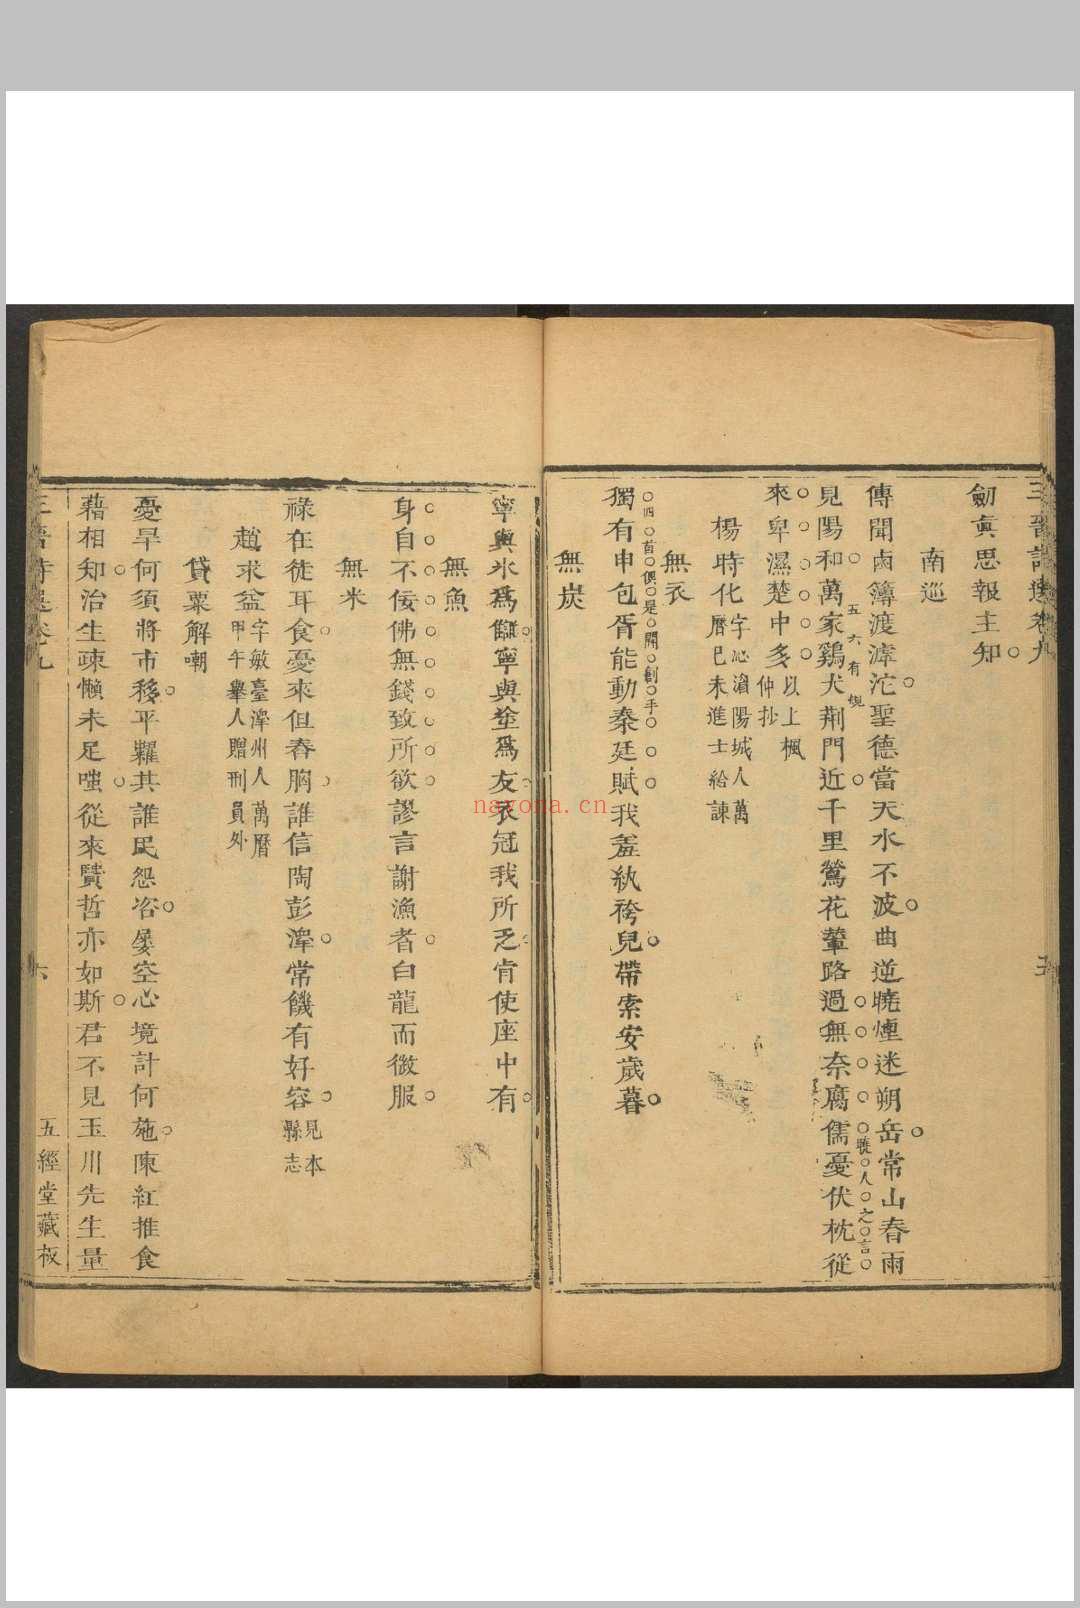 三晉詩選卷九
劒眞思報主知
南巡
傳聞鹵簿渡滹沱聖德當天水不波曲逆曉煙迷朔岳常山春雨
見陽和萬家鷄犬荆門近千里鶯花輦路過無奈腐儒憂伏枕從
五六有規
雖人之言
來卑濕楚中多以上楓
仲抄
楊時化字沁濵陽城人萬
曆己未進士給諫
無衣
四首俱是開創手
獨有申包胥能動秦廷賦我羞紈袴兒帶索安歲暮
無炭
寧與氷爲讎寧與塗爲友衣冠我所乏肯使座中有
無魚
身自不佞佛無錢致所欲謬言謝漁者白龍而微服
無米
祿在徒耳食憂來但舂胸誰信陶彭澤常饑有好容見本
縣志
趙求益字敏臺澤州人萬曆
甲午舉人贈刑員外
貸粟解嘲
憂旱何須將市移平糶共誰民怨咨屡空心境計何施陳紅推食
藉相知治生疎懶未足嗤從來賢哲亦如斯君不見玉川先生量
三晉詩選卷九
六
五經堂藏板
nayona.cn